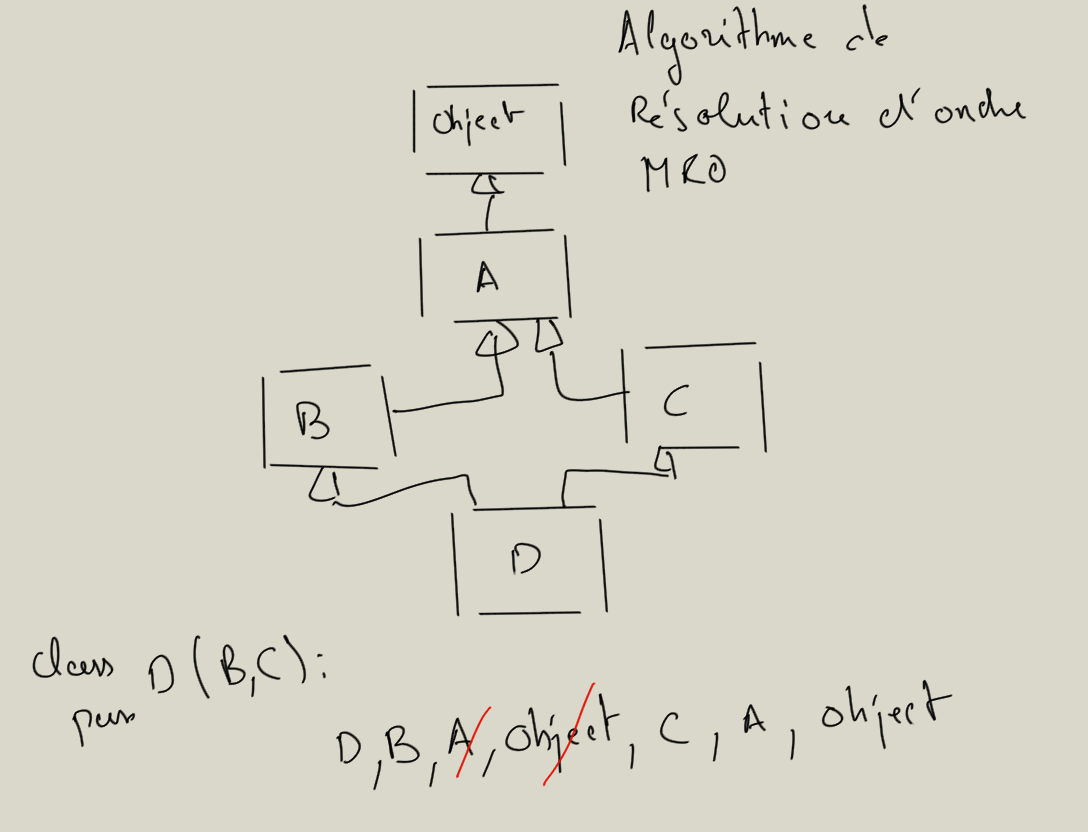 Algorithme de
Résolution d'ordre
MRO
object
A
B
C
D
class D(B,C):
pass
D, B, A, object, C, A, object